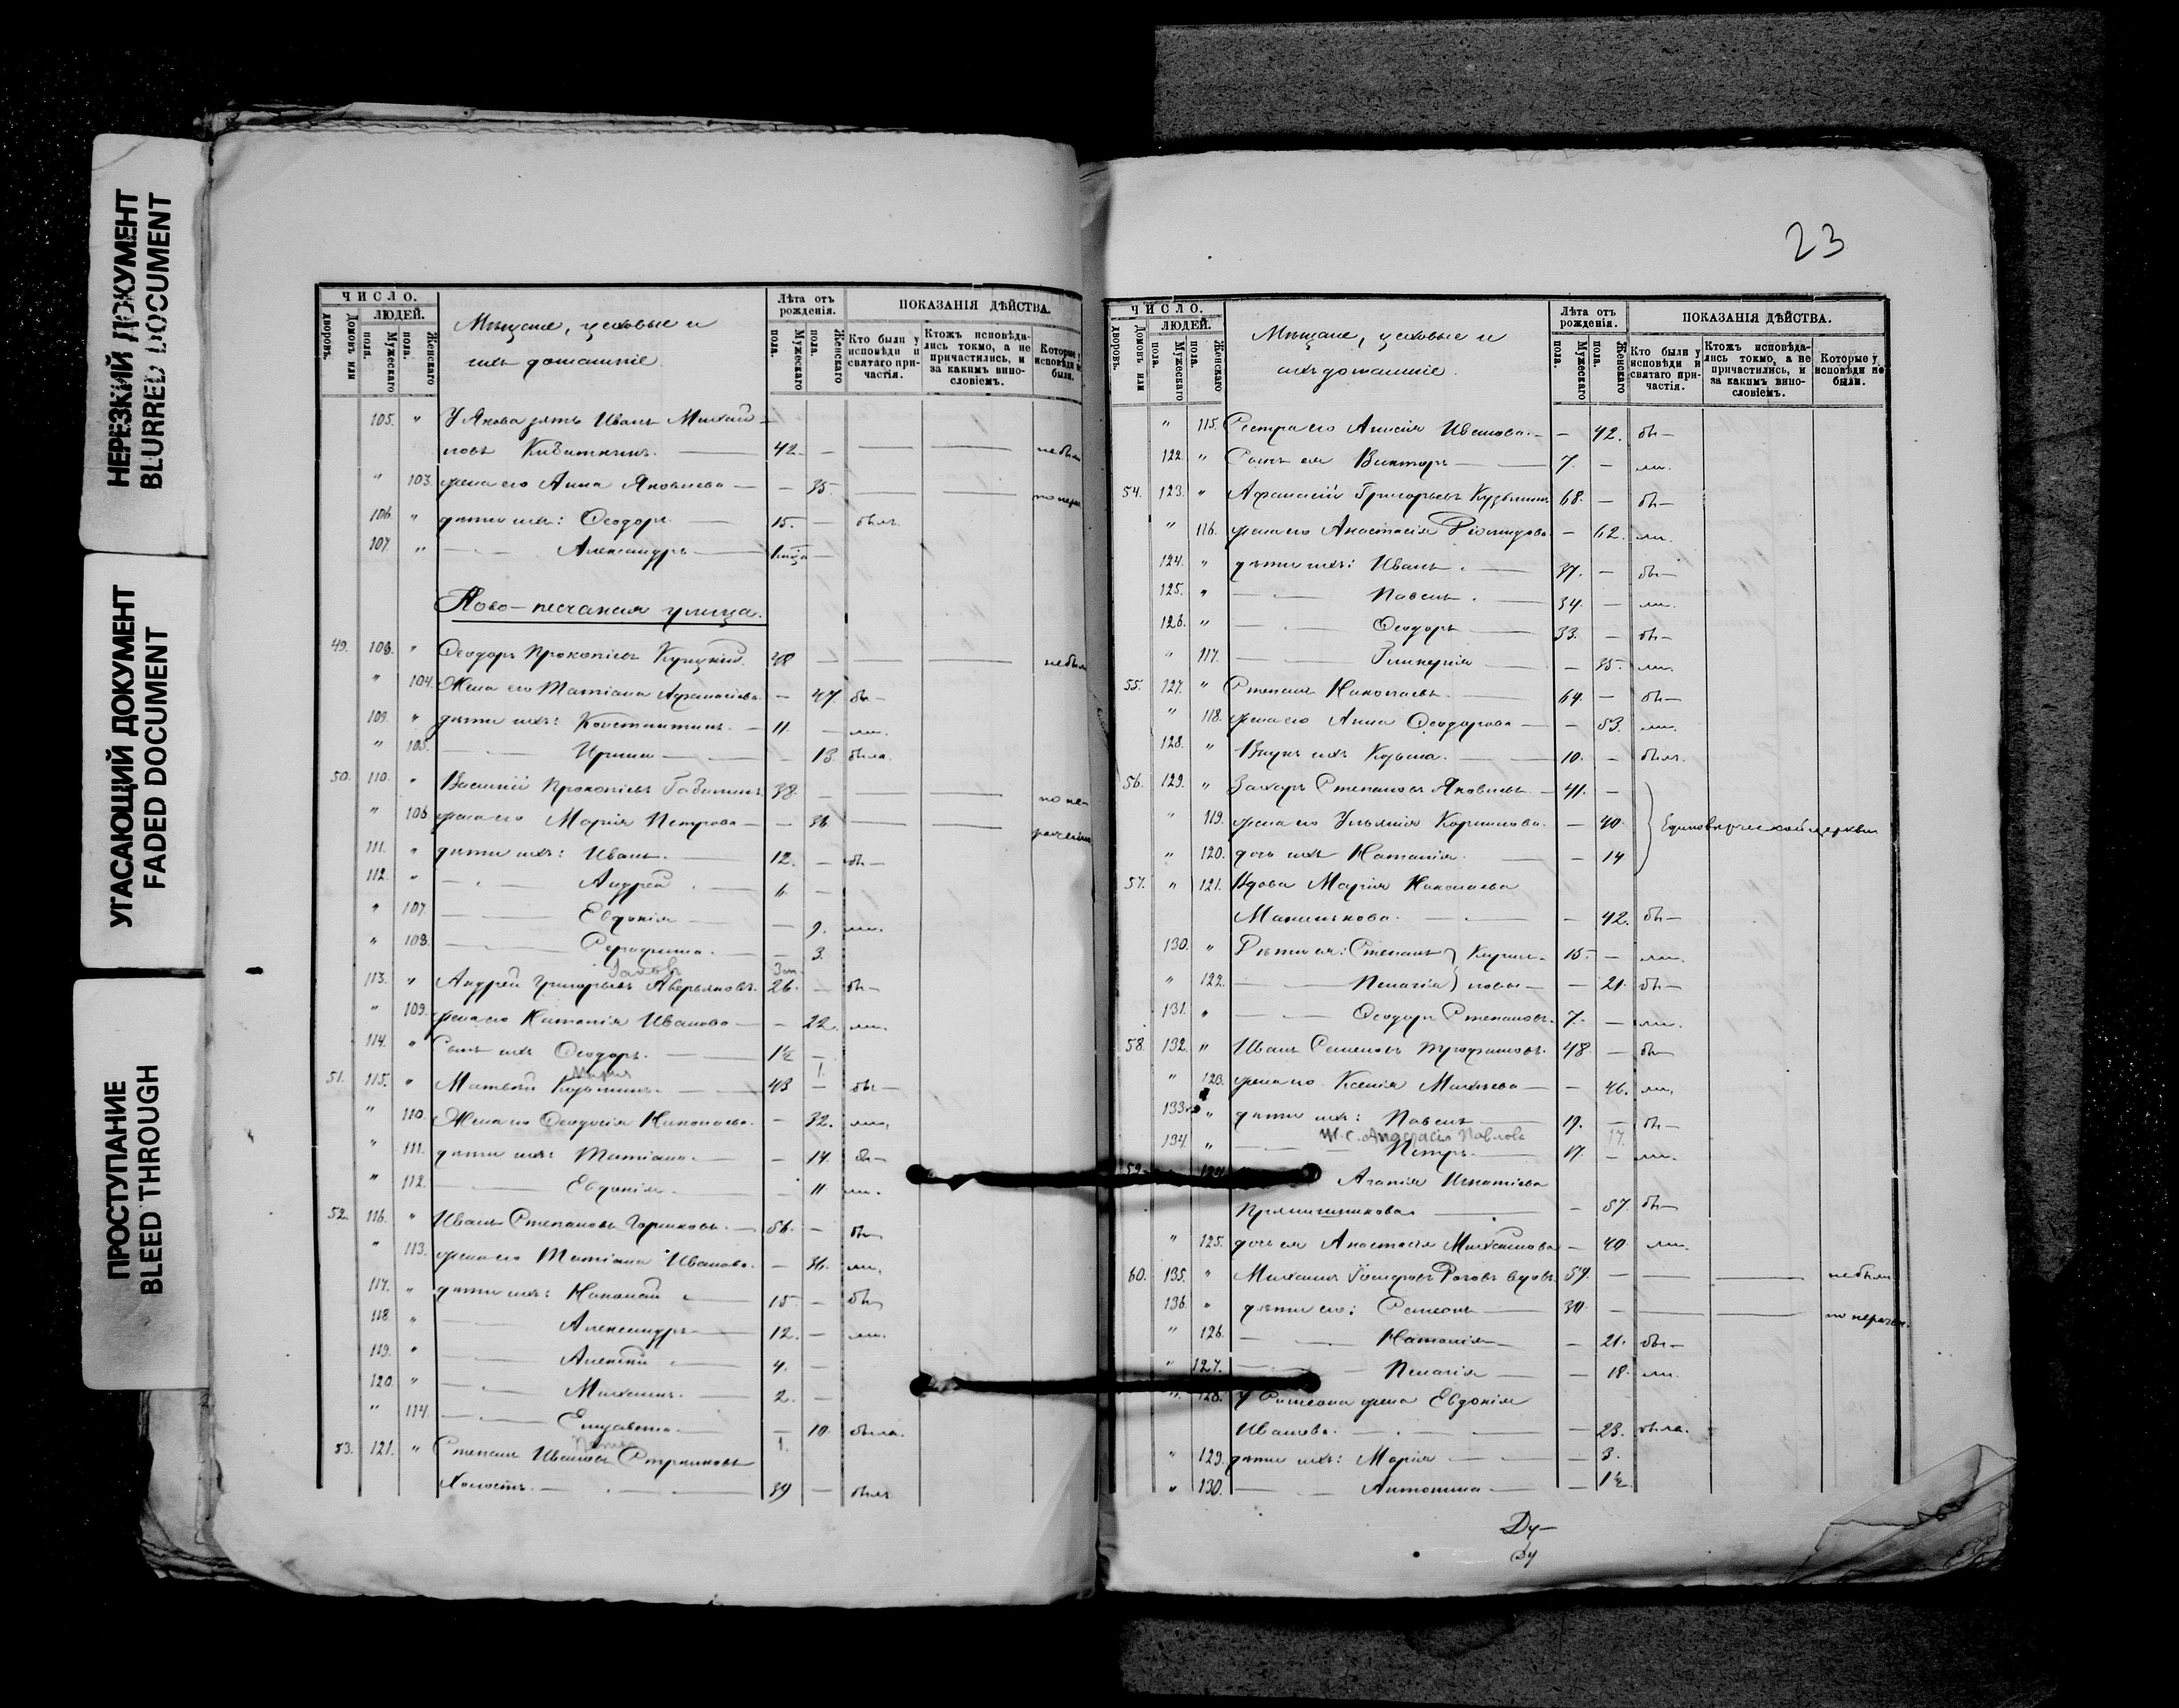 НЕРЕЗКИЙ ДОКУМЕНТ
BLURRED DOCUMENT
УГАСАЮЩИЙ ДОКУМЕНТ
FADED DOCUMENT
ПРОСТУПАНИЕ
BLEED THROUGH
ЧИСЛО.
Домовъ или дворовъ.
ЛЮДЕЙ.
Мужескаго пола.
Женскаго пола.
Мѣщане, цеховые и
ихъ домашніе.
Лѣта отъ рожденія.
Мужескаго пола.
Женскаго пола.
ПОКАЗАНІЯ ДѢЙСТВА.
Кто были у исповѣди и святаго причастія.
Ктожъ исповѣдались токмо, а не причастились, и за какимъ винословіемъ.
Которые у исповѣди не были.
105. " У Якова зять Иванъ Михай-
ловъ 42. — небыли
" 103. жена его Анна Яковлева — — 35. по нера
106. " дѣти ихъ: Ѳеодоръ 15. — былъ
107. " Александръ
Ново-песчаная улица.
49. 108. " Ѳеодоръ Прокопіевъ Купцкій 48 — небыли
" 104. Жена его Татіана Аѳанасіева — 47. бы—
109. " дѣти ихъ: Константинъ. — 11. — ли.
" 105. Ирина — 13. была.
50. 110. " Василій Прокопіевъ 38. — по не-
" 106. жена его Марія Петрова — — 36. раченію
111. " дѣти ихъ: Иванъ. 12. — бы—
112. " Андрей 6. —
" 107. Евдокія — 9. ли.
" 108. Серафима. — 3.
113. " Андрей Григорьевъ Аверьяновъ. 26. — бы—
" 109. жена его Наталія Иванова — 22. ли.
114. " Сынъ ихъ Ѳеодоръ. 1½ —
Марія 1.
51. 115. " Матвѣй Кузьминъ. 43 — бы—
" 110. Жена его Ѳеодосія Николаева. — 32. ли.
" 111. дѣти ихъ: Татіана — 14. бы—
" 112. Евдокія. — 11. ли.
52. 116. " Иванъ Степановъ Горшковъ. — 56. — бы—
" 113. жена его Татіана Иванова. — 36. ли.
117. " дѣти ихъ: Николай 15. — бы—
118. " Александръ 12. — ли.
119. " Алексѣй 4. —
120. " Михаилъ. 2. —
" 114. Елизавета. — 10. была.
53. 121. " Степанъ Ивановъ Стрѣлковъ
Холостъ. 39 — былъ
23
ЧИСЛО.
Домовъ или дворовъ.
ЛЮДЕЙ.
Мужескаго пола.
Женскаго пола.
Мѣщане, цеховые и
ихъ домашніе.
Лѣта отъ рожденія.
Мужескаго пола.
Женскаго пола.
ПОКАЗАНІЯ ДѢЙСТВА.
Кто были у исповѣди и святаго причастія.
Ктожъ исповѣдались токмо, а не причастились, и за какимъ винословіемъ.
Которые у исповѣди не были.
" 115. Сестра его Анисія Иванова. — 42. бы—
122. " Сынъ ея Викторъ 7. — ли.
54. 123. " Аѳанасій Григорьевъ Кузьминъ 68. — бы—
" 116. жена его Анастасія — 62. ли.
124. " дѣти ихъ: Иванъ. 37. — бы—
125. " Павелъ. 34. — ли.
126. " Ѳеодоръ 33. — бы—
" 117. Гликерія — 35. ли.
55. 127. " Степанъ Николаевъ. 64. — бы—
" 118. жена его Анна Ѳеодорова — — 53. ли.
128. " Внукъ ихъ Козьма. 10. — былъ.
56. 129. " Захаръ Степановъ Яковлевъ — 41. —
" 119. жена его Ульянія Корнилова. — 40. Единовѣрческой церкви
" 120. дочь ихъ Наталія. — 14
57. " 121. Вдова Марія Николаева
— 42. бы—
130. " Дѣти ея: Степанъ } Кирил- 15. — ли.
" 122. Пелагія } ловы — — 21. бы—
131. " Ѳеодоръ Степановъ. 7. — ли.
58. 132. " Иванъ Семеновъ Трофимовъ. 48. — бы—
" 123. жена его Ксенія — 46. ли.
133. " дѣти ихъ: Павелъ 19. — бы—
Анастасія Павлова 17.
134. " Петръ. 17. — ли.
59. Агапія Игнатіева
— 57. бы—
" 125. дочь ея Анастасія Михаилова — 40. ли.
60. 135. " Михаилъ Іосифовъ Роговъ вдовъ 59. — небыли
136. " дѣти его: Симеонъ 30. — по нерачен.
" 126. Наталія — 21. бы—
" 127. Пелагія — 18. ли.
" 128. У Симеона жена Евдокія
Иванова. — 23. была.
" 129. дѣти ихъ: Марія — 3.
" 130. Антонина — 1½
Ду—